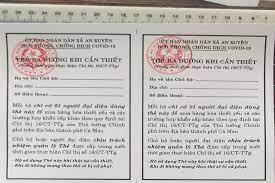 ỦY BAN NHÂN DÂN XÃ AN XUYÊN
BCĐ PHÒNG, CHỐNG DỊCH COVID-19
THẺ RA ĐƯỜNG KHI CẦN THIẾT
(Trong thời gian thực hiện Chỉ thị 16/CT-TTg)
Họ và tên Chủ hộ:
Địa chỉ:
Số điện thoại:
Mỗi hộ chỉ cử 01 người đại diện dùng
thẻ này đi mua hàng hóa thiết yếu và các
trường hợp khẩn cấp khác theo quy định tại
Chỉ thị 16/CT-TTg của Thủ tướng Chính
phủ trên địa bàn thành phố Cà Mau.
Người đại diện hộ này chịu trách
nhiệm quản lý Thẻ được cấp trong suốt
thời gian thực hiện Chỉ thị 16/CT-TTg.
ỦY BAN NHÂN DÂN XÃ AN XUYÊN
BCĐ PHÒNG, CHỐNG DỊCH COVID-19
THẺ RA ĐƯỜNG KHI CẦN THIẾT
(Trong thời gian thực hiện Chỉ thị 16/CT-TTg)
Họ và tên Chủ hộ:
Địa chỉ:
Số điện thoại:
Mỗi hộ chỉ cử 01 người đại diện dùng
thẻ này đi mua hàng hóa thiết yếu và các
trường hợp khẩn cấp khác theo quy định tại
Chỉ thị 16/CT-TTg của Thủ tướng Chính
phủ trên địa bàn thành phố Cà Mau.
Người đại diện hộ này chịu trách
nhiệm quản lý Thẻ được cấp trong suốt
thời gian thực hiện Chỉ thị 16/CT-TTg.